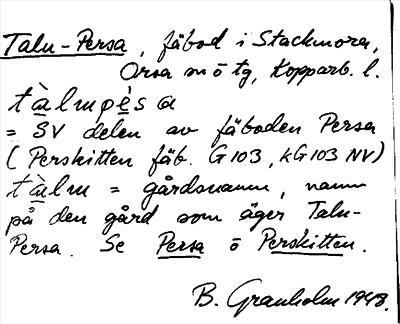 Talu-Persa, fäbod i Stackmora,
Orsa sn ö tg, Kopparb. l.
tàlmpés a
= SV delen av fäboden Persa
(Perskitten fäb. G103, kG103 NV)
tàlm = gårdsnamn, namn
på den gård som äger Talu-
Persa. Se Persa o Perskitten.
B. Granholm 1948.